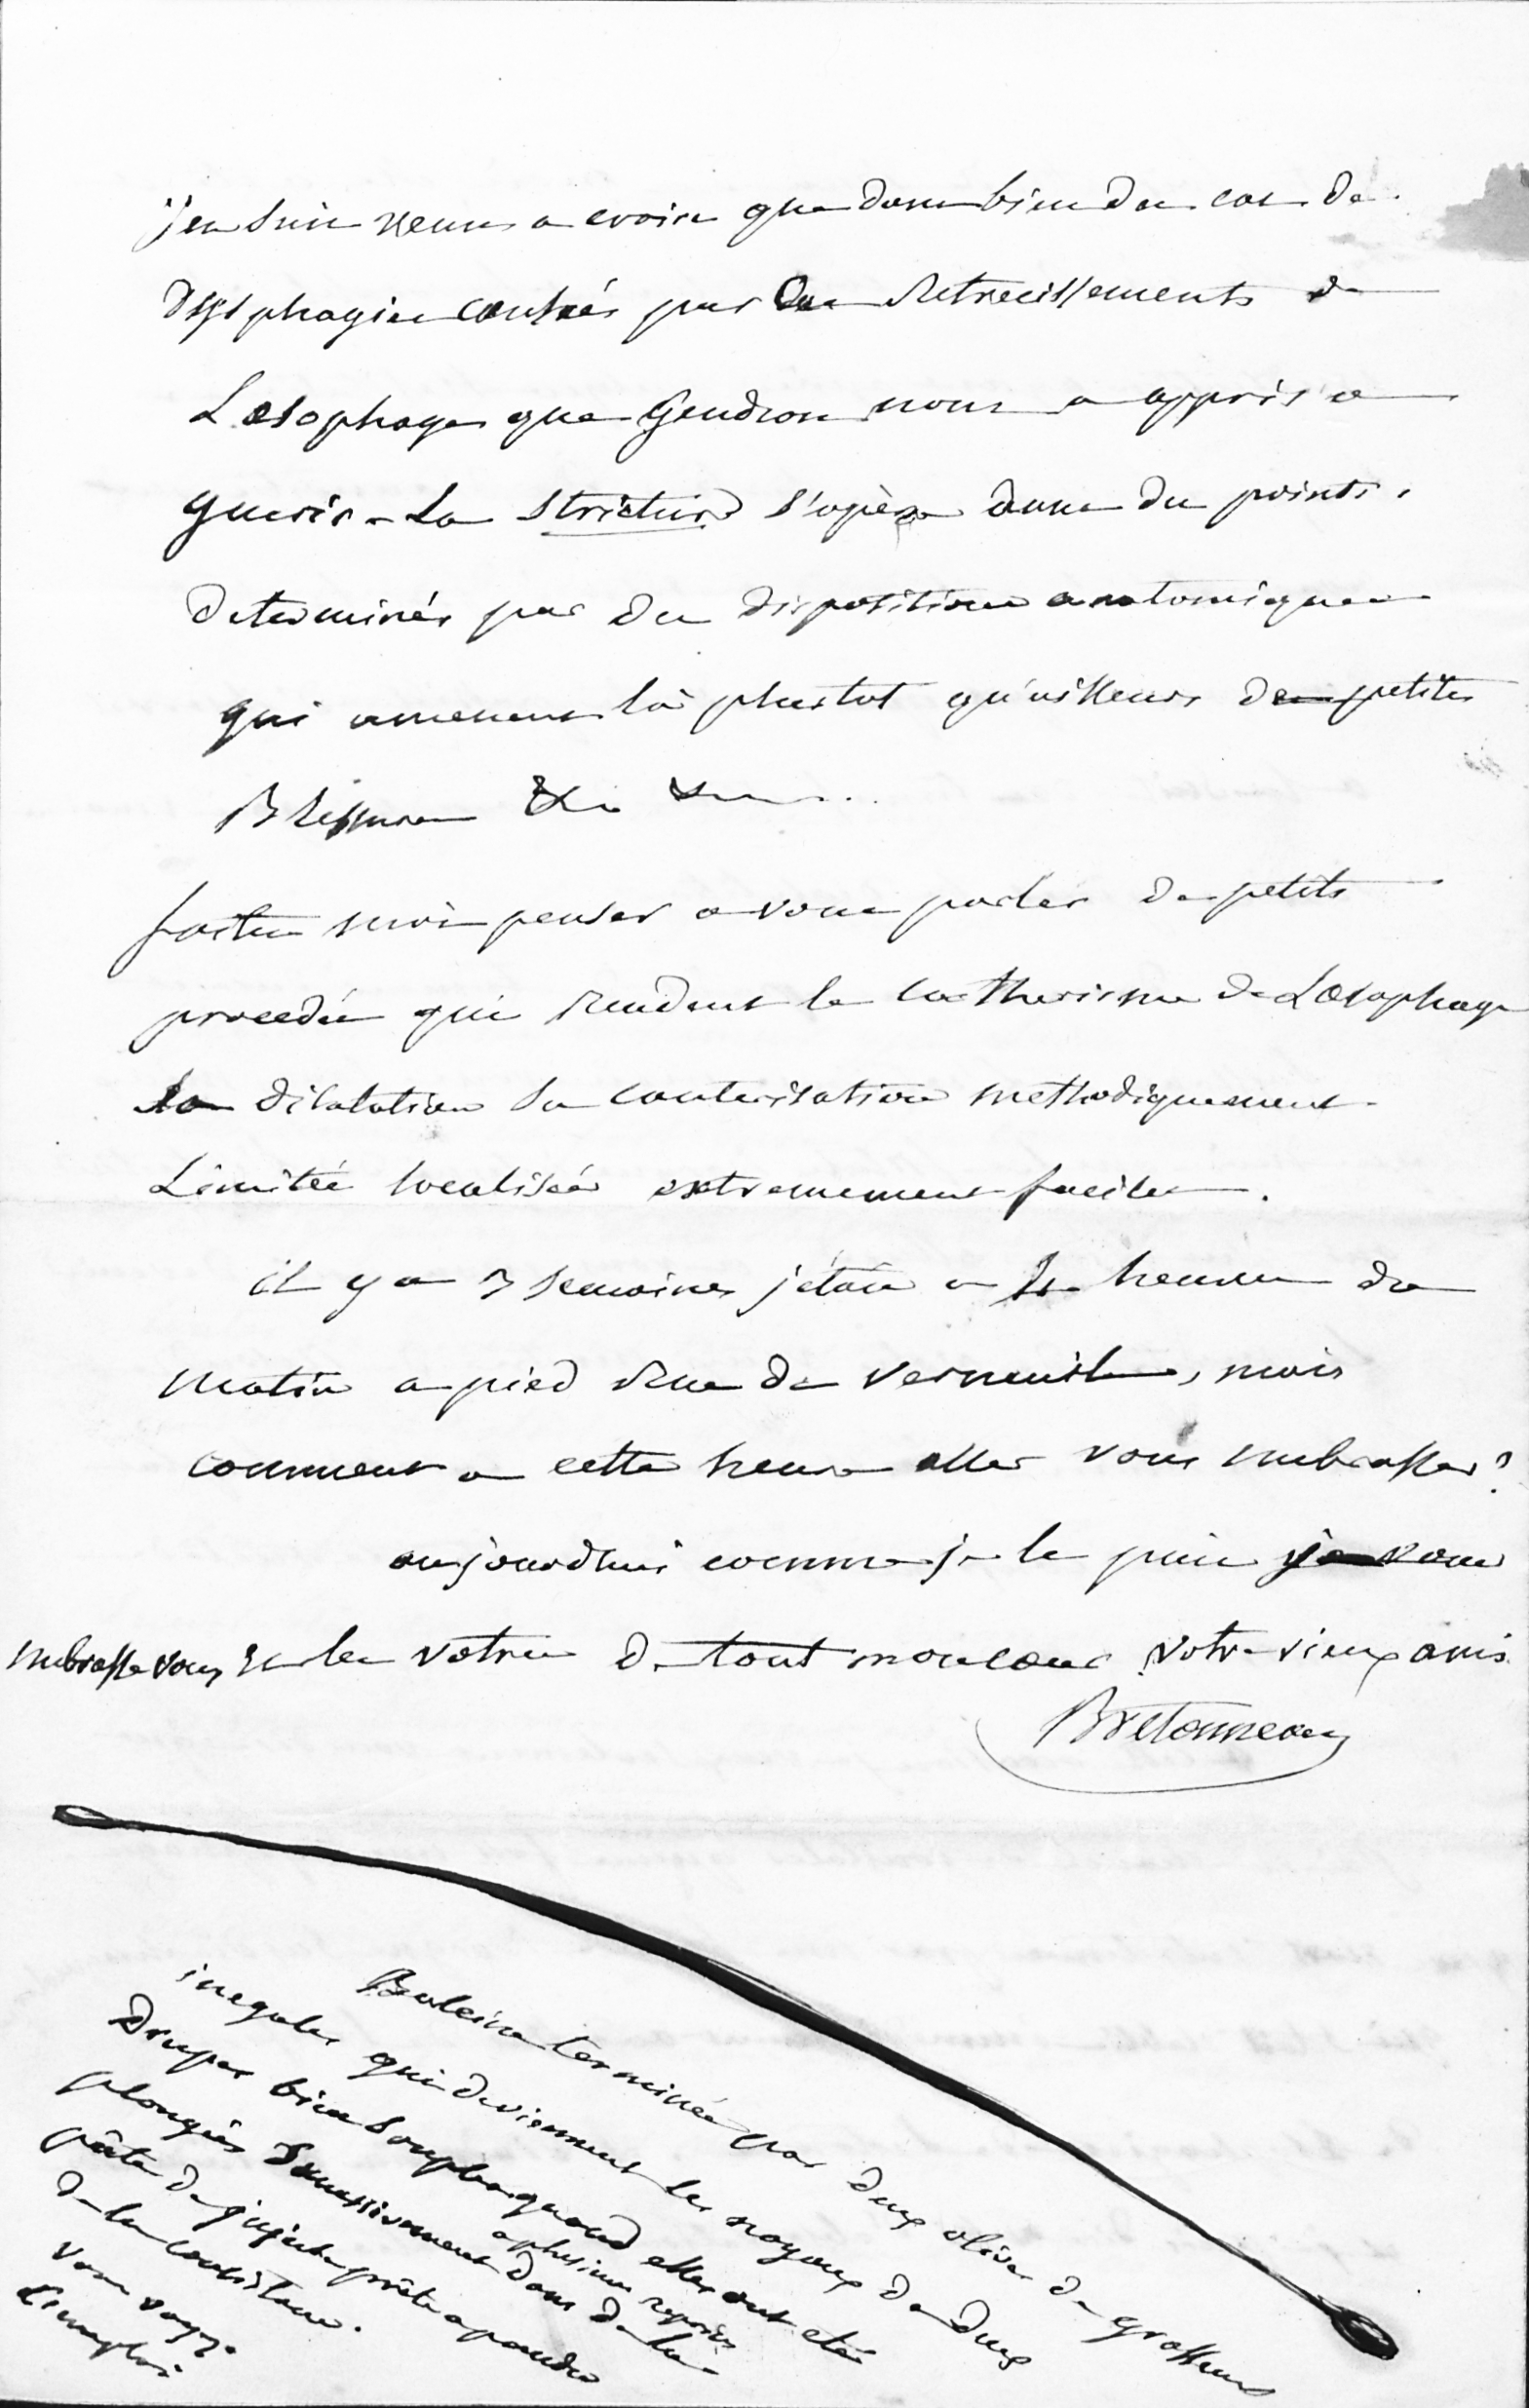 j'en suis venu a croire que dans bien des cas de
dysphagie causées par des retrecissements de
L'œsophage que Gendron nous a appris a
guerir - La stricture s'opère dans des points
determinés par des dispositions anatomiques
qui amenent là plustot qu'ailleurs de petites
Blessures &c &c...
faites moi penser a vous parler de petits
procedés qui rendent le catherisme de L'œsophage
sa dilatation sa cauterisation methodiquement
Limitée localisée extremement faciles.
il y a 3 semaines j'étais a heures du
matin a pied rue de verneuil, mais
comment a cette heure aller vous embrasser?
aujourdhui comme je le puis je vous
embrasse vous et les votres de tout mon cœur votre vieux ami
Bretonneau
Baleine terminée par deux olives de grosseurs
inegales qui deviennent les noyaux de deux
Drupes bien souples quand elles ont été
plongées successivement a plusieurs reprises dans de la
pâte de jujube prête a prendre
de la consistance.
vous voyez
L'emploi